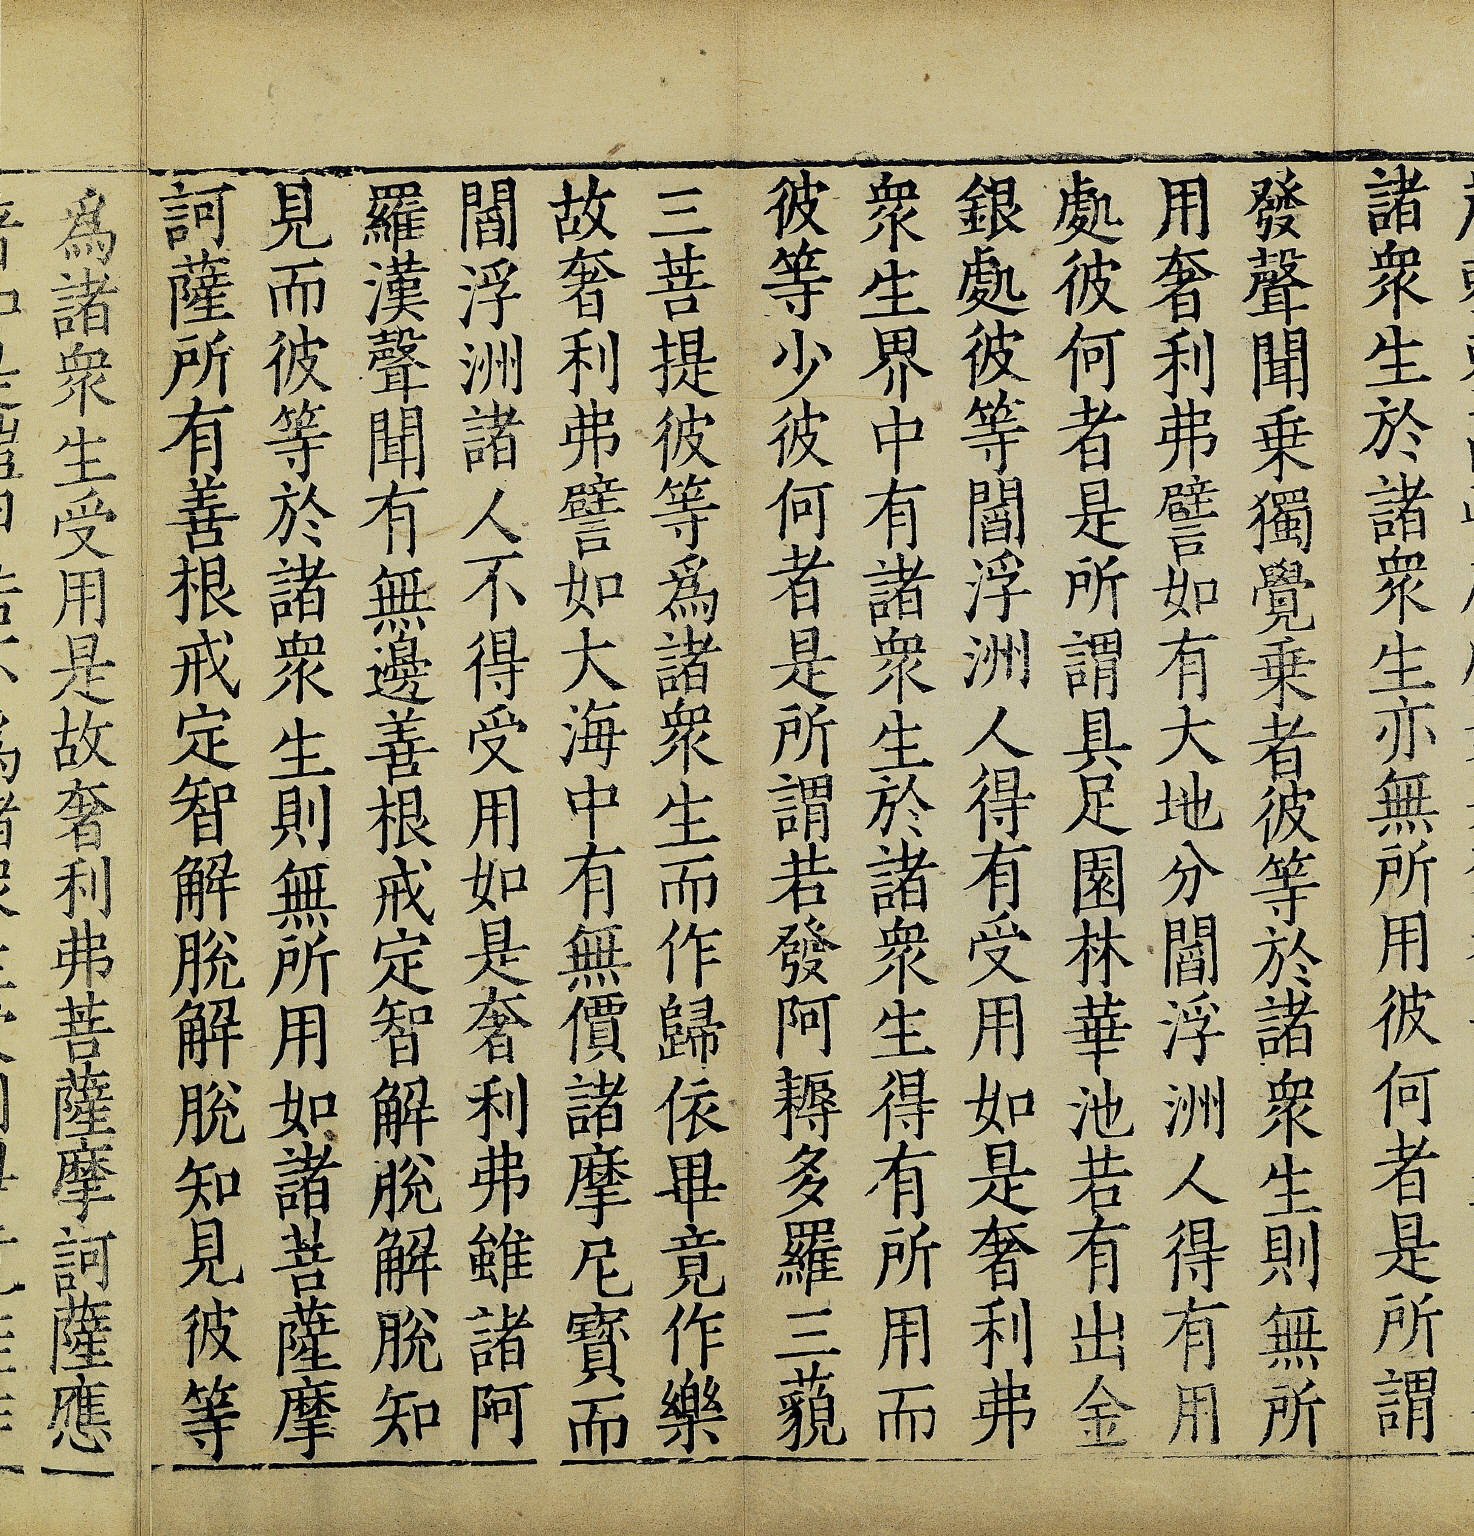 諸衆生於諸衆生亦無所用彼何者是所謂
發聲聞乗獨覺乗者彼等於諸衆生則無所
用奢利弗譬如有大地分閻浮洲人得有用
處彼何者是所謂具足園林華池若有出金
銀處彼等閻浮洲人得有受用如是奢利弗
衆生界中有諸衆生於諸衆生得有所用而
彼等少彼何者是所謂若發阿耨多羅三藐
三菩提彼等爲諸衆生而作歸依畢竟作樂
故奢利弗譬如大海中有無價諸摩尼寶而
閻浮洲諸人不得受用如是奢利弗雖諸阿
羅漢聲聞有無邊善根戒定智解脫解脫知
見而彼等於諸衆生則無所用如諸菩薩摩
訶薩所有善根戒定智解脫解脫知見彼等
爲諸衆生受用是故奢利弗菩薩摩訶薩應